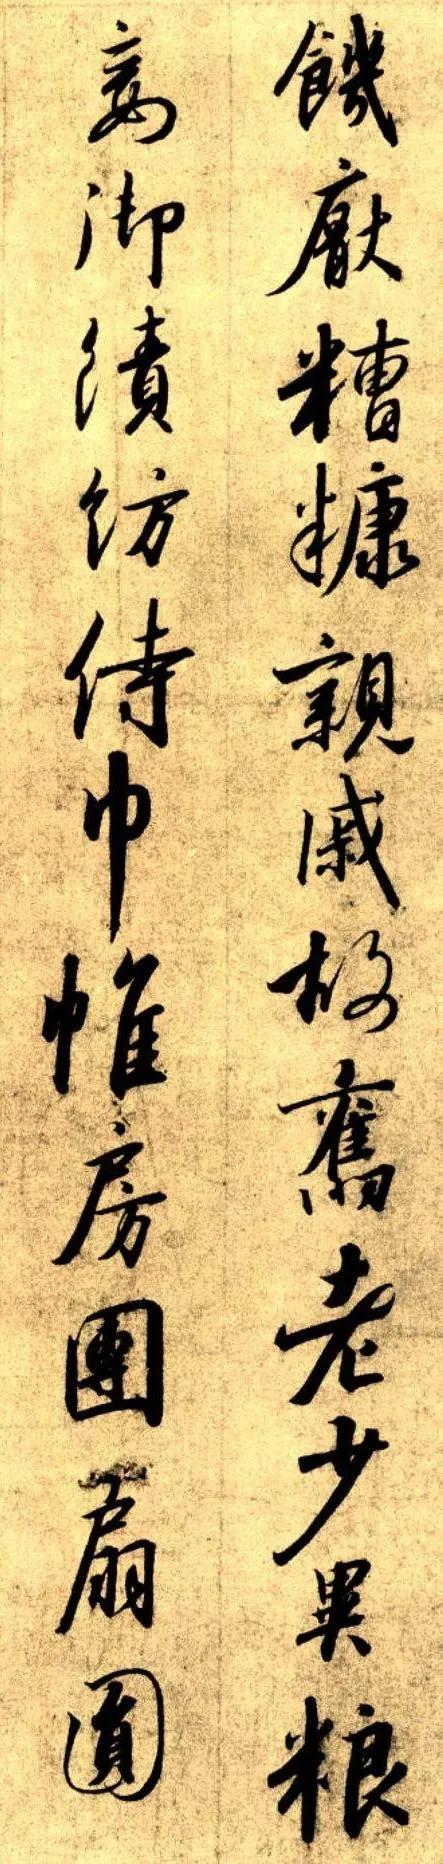 饑厭糟糠親戚故舊老少異粮
妾御績紡侍巾帷房團扇圓